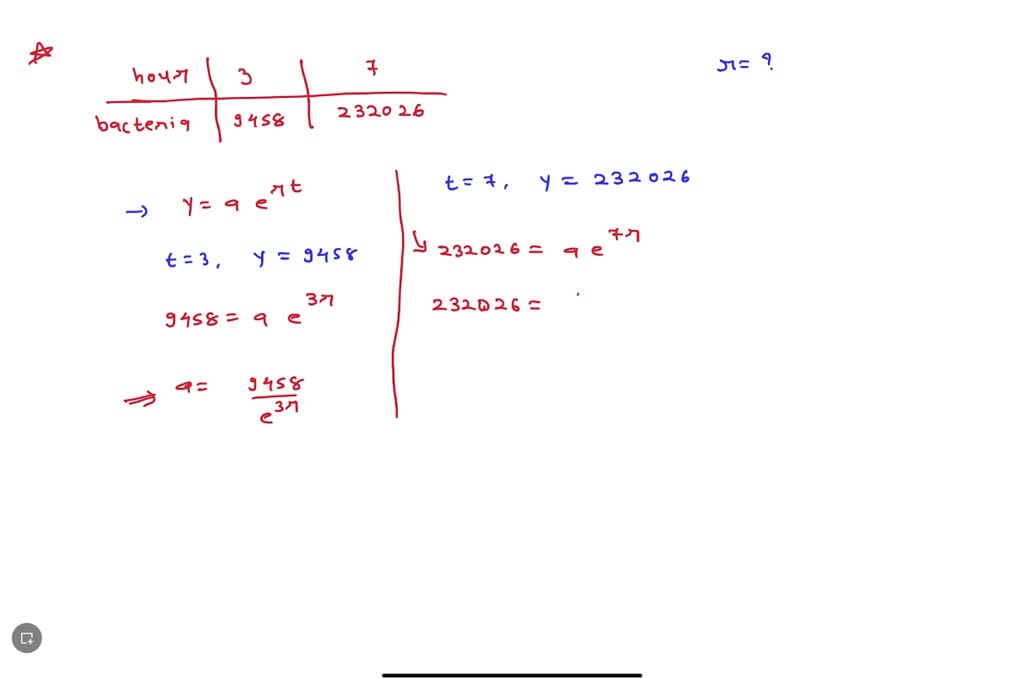 r = ?
hour 3 7
bacteria 9458 232026
→ y = a e^{rt}
t = 3, y = 9458
9458 = a e^{3r}
⇒ a = 9458 / e^{3r}
t = 7, y = 232026
232026 = a e^{7r}
232026 =